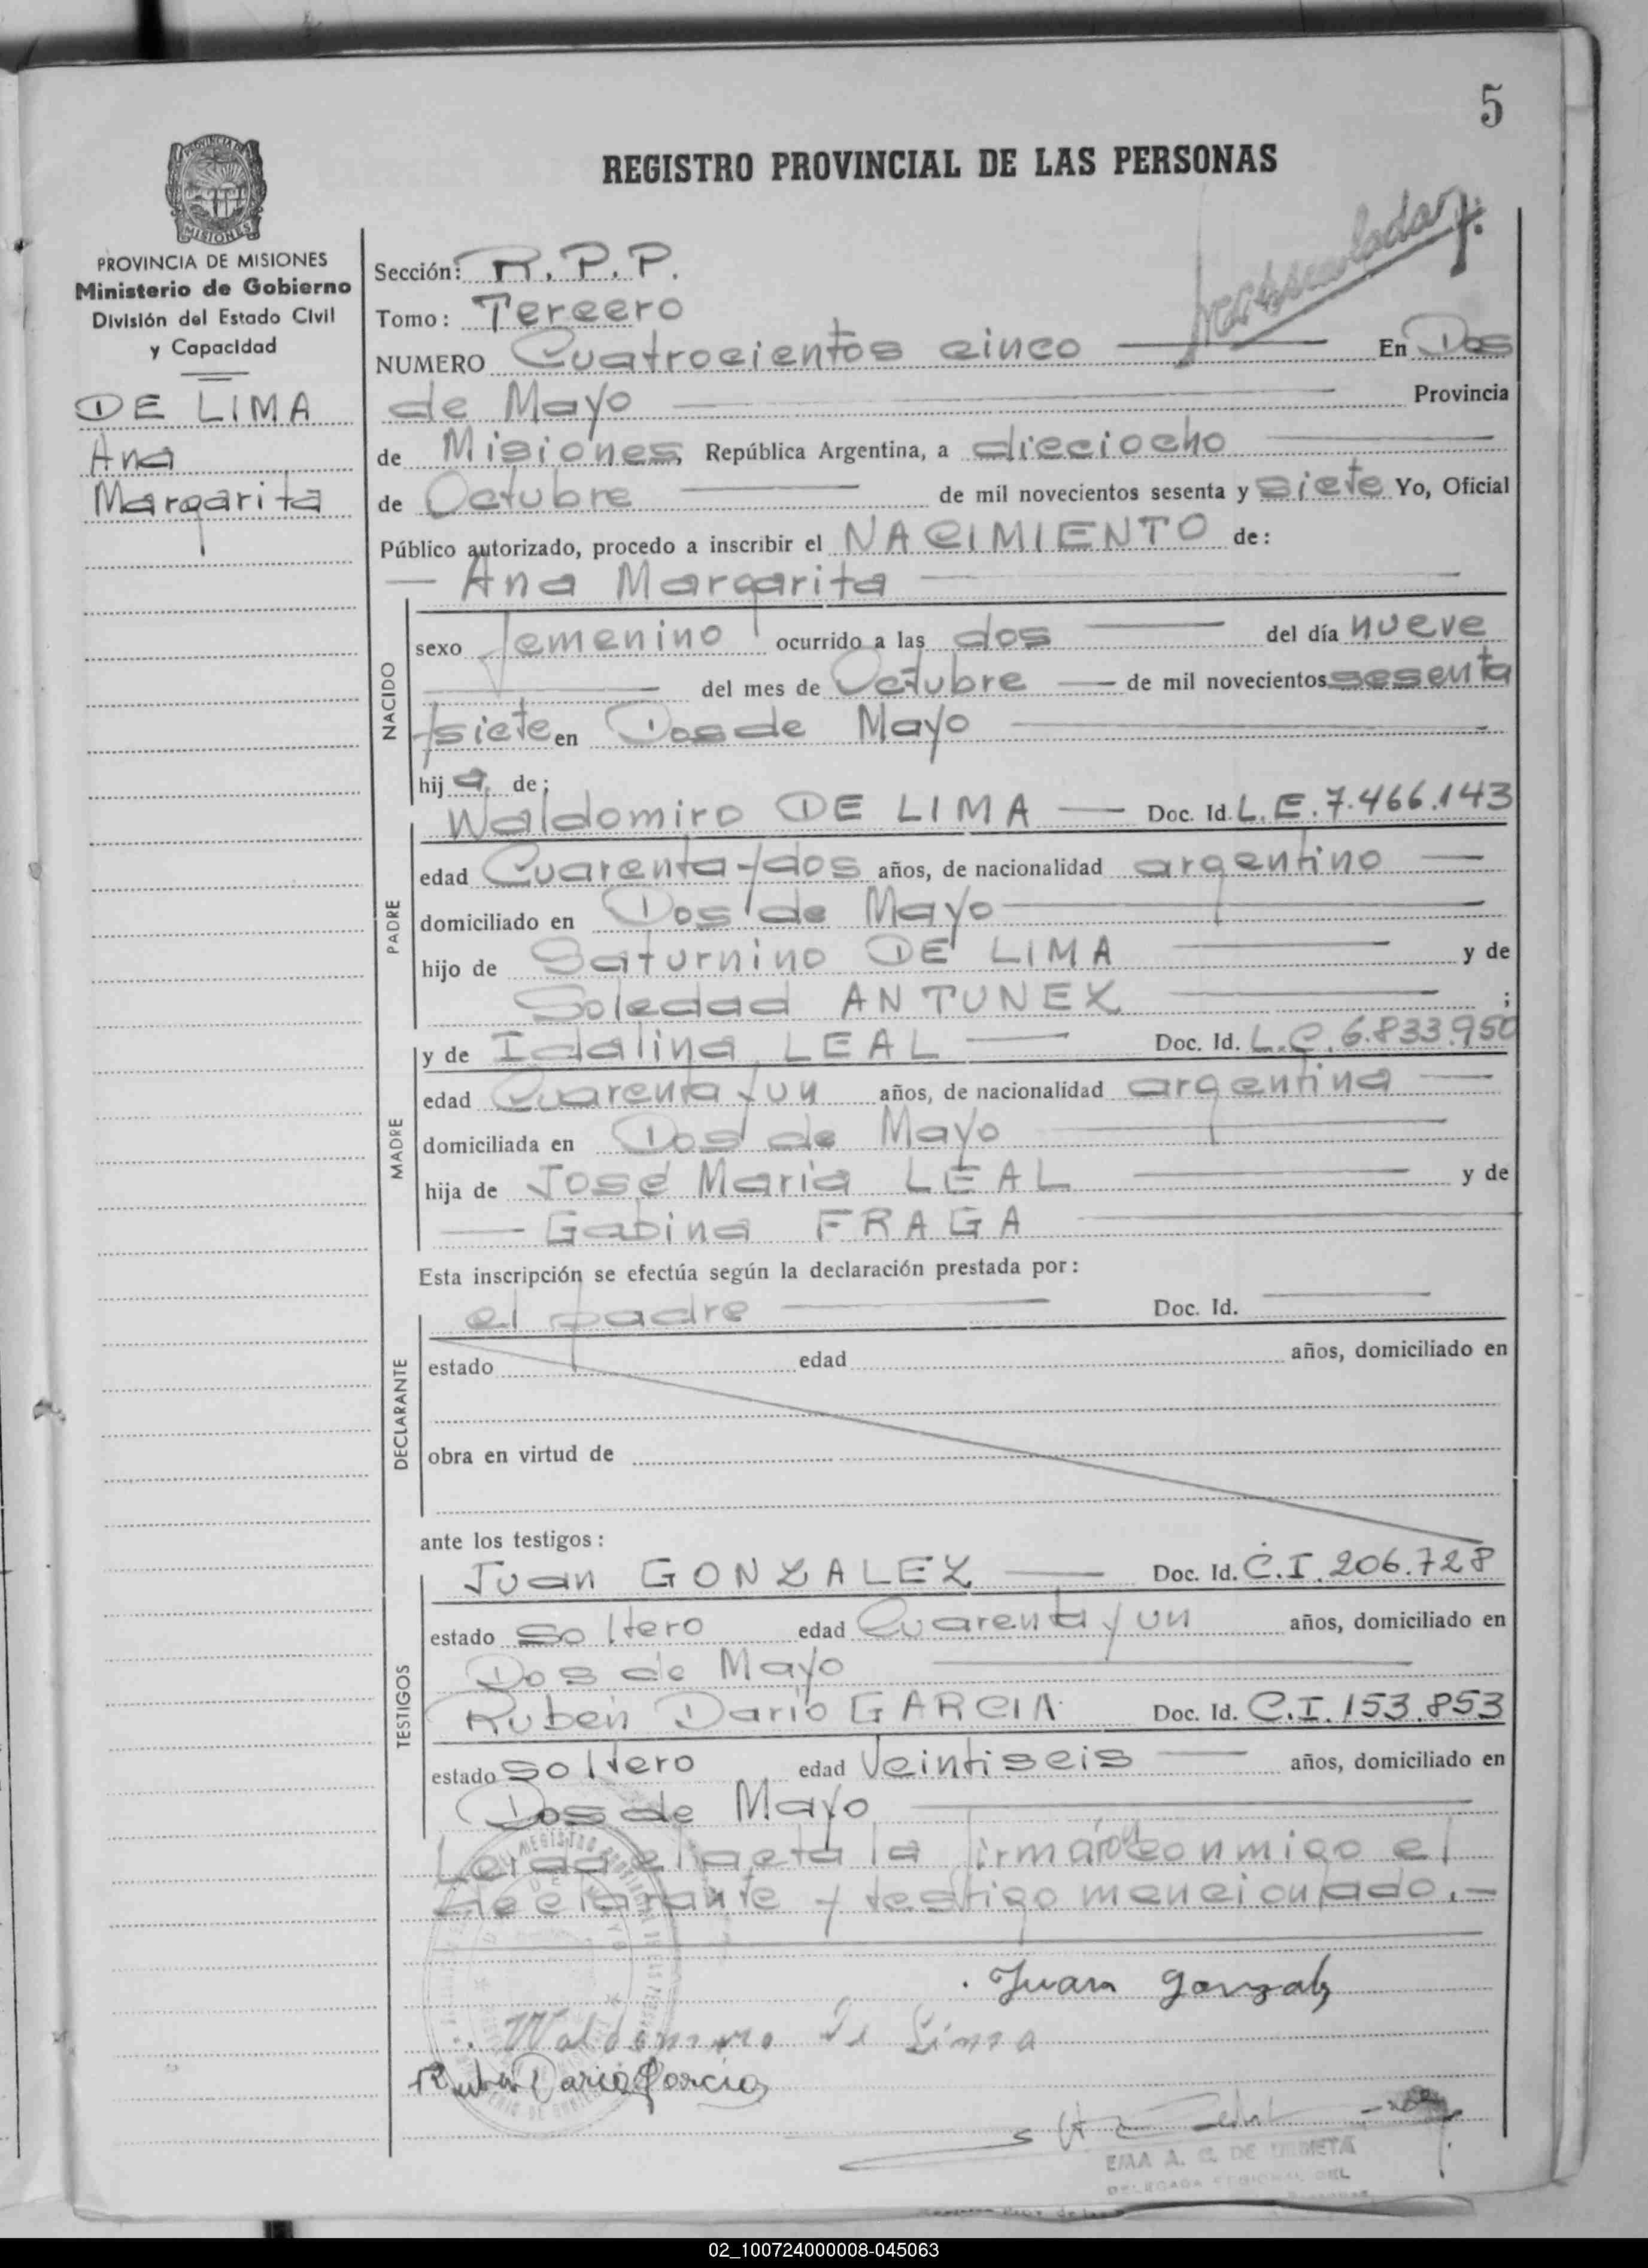 5
REGISTRO PROVINCIAL DE LAS PERSONAS
PROVINCIA DE MISIONES
Ministerio de Gobierno
División del Estado Civil
y Capacidad
DE LIMA
Ana
Margarita
Sección: R.P.P.
Tomo: Tercero
NUMERO Cuatrocientos cinco En Dos
de Mayo Provincia
de Misiones, República Argentina, a dieciocho
de Octubre de mil novecientos sesenta y siete Yo, Oficial
Público autorizado, procedo a inscribir el NACIMIENTO de:
Ana Margarita
NACIDO
sexo femenino ocurrido a las dos del día nueve
del mes de Octubre de mil novecientos sesenta
y siete en Dos de Mayo
hija de:
Waldomiro DE LIMA Doc. Id. L.E. 7.466.143
PADRE
edad Cuarenta y dos años, de nacionalidad argentino
domiciliado en Dos de Mayo
hijo de Saturnino DE LIMA y de
Soledad ANTUNEZ ;
MADRE
y de Idalina LEAL Doc. Id. L.C. 6.833.950
edad Cuarenta y un años, de nacionalidad argentina
domiciliada en Dos de Mayo
hija de José Maria LEAL y de
Gabina FRAGA
Esta inscripción se efectúa según la declaración prestada por:
el padre Doc. Id.
DECLARANTE
estado edad años, domiciliado en
obra en virtud de
ante los testigos:
TESTIGOS
Juan GONZALEZ Doc. Id. C.I. 206.728
estado soltero edad Cuarenta y un años, domiciliado en
Dos de Mayo
Ruben Dario GARCIA Doc. Id. C.I. 153.853
estado soltero edad Veintiseis años, domiciliado en
Dos de Mayo
Leida el acta la firmaron conmigo el
declarante y testigo mencionado.-
Juan Gonzalz
Waldomiro De Lima
Ruben Dario Garcia
EMA A. G. DE URMETA
DELEGADA REGIONAL DEL
02_100724000008-045063